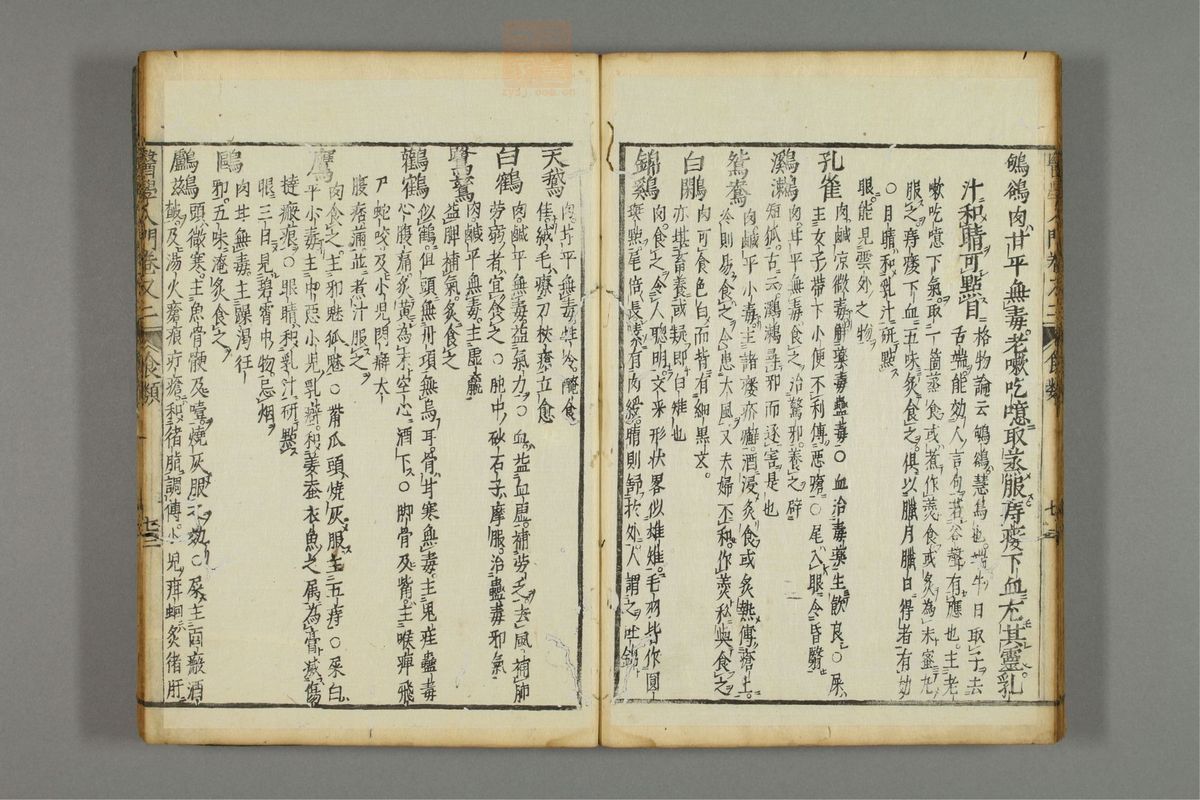 鸲鵒肉甘平無毒老嗽吃噫取蒸服痔瘻下血尤其靈乳
汁和睛可點目
格物論云鸲鵒慧鳥也端午日取子去
舌端能効人言句若谷聲有應也主老
嗽吃噫下氣取一箇蒸食或煮作羹食或炙為末蜜丸
服之痔瘻下血五味炙食之俱以臘月臘日得者有妙
○目睛和乳汁研點
眼能見雲外之物
孔雀
肉鹹凉微毒解藥毒蠱毒○血治毒藥生飲良○屎
主女子帶下小便不利傅惡瘡○尾入眼令昏翳
鸂鶒
肉甘平無毒食之治驚邪養之辟
短狐古云鸂鶒尋邪而逐害是也
鴛鴦
肉鹹平小毒主諸瘻疥癬酒浸炙食或炙熱傅瘡上
冷則易食之令患大風又夫婦不和作羹私與食之
白鷴
肉可食色白而背有細黑文
亦堪畜養或疑即白雉也
錦鷄
肉食之令人聰明文采形狀畧似雄雉毛羽皆作圓
斑㸃尾倍長嗉有肉綬晴則舒於外人謂之吐錦
天鵝
肉甘平無毒性冷醃食
佳絨毛療刀杖瘡立愈
白鶴
肉鹹平無毒益氣力○血益血虛補勞乏去風補肺
勞弱者宜食之○肫中砂石子摩服治蠱毒邪氣
肉鹹平無毒主虛羸
益脾補氣炙食之
鸛鶴
似鶴但頭無丹項無烏耳骨甘寒無毒主鬼疰蠱毒
心腹痛炙黄為末空心酒下○脚骨及嘴主喉痺飛
尸蛇咬及小兒閃癖大
腹痞滿並煮汁服之
鷹
肉食之主邪魅狐魅○觜爪頭燒灰服主五痔○屎白
平小毒主中惡小兒乳癖和姜蚕衣魚之属為膏滅傷
撻瘢痕○眼睛和乳汁研點
眼三日見碧霄中物忌烟
鷗
肉甘無毒主躁渴狂
邪五味淹炙食之
鸕鷀
頭微寒主魚骨骾及噎燒灰服不効○屎主面瘢酒
皶及湯火瘡痕疔瘡和猪脂調傅小兒疳蛔炙猪肝
醫學入門卷又二 食類
醫學入門卷又二 食類